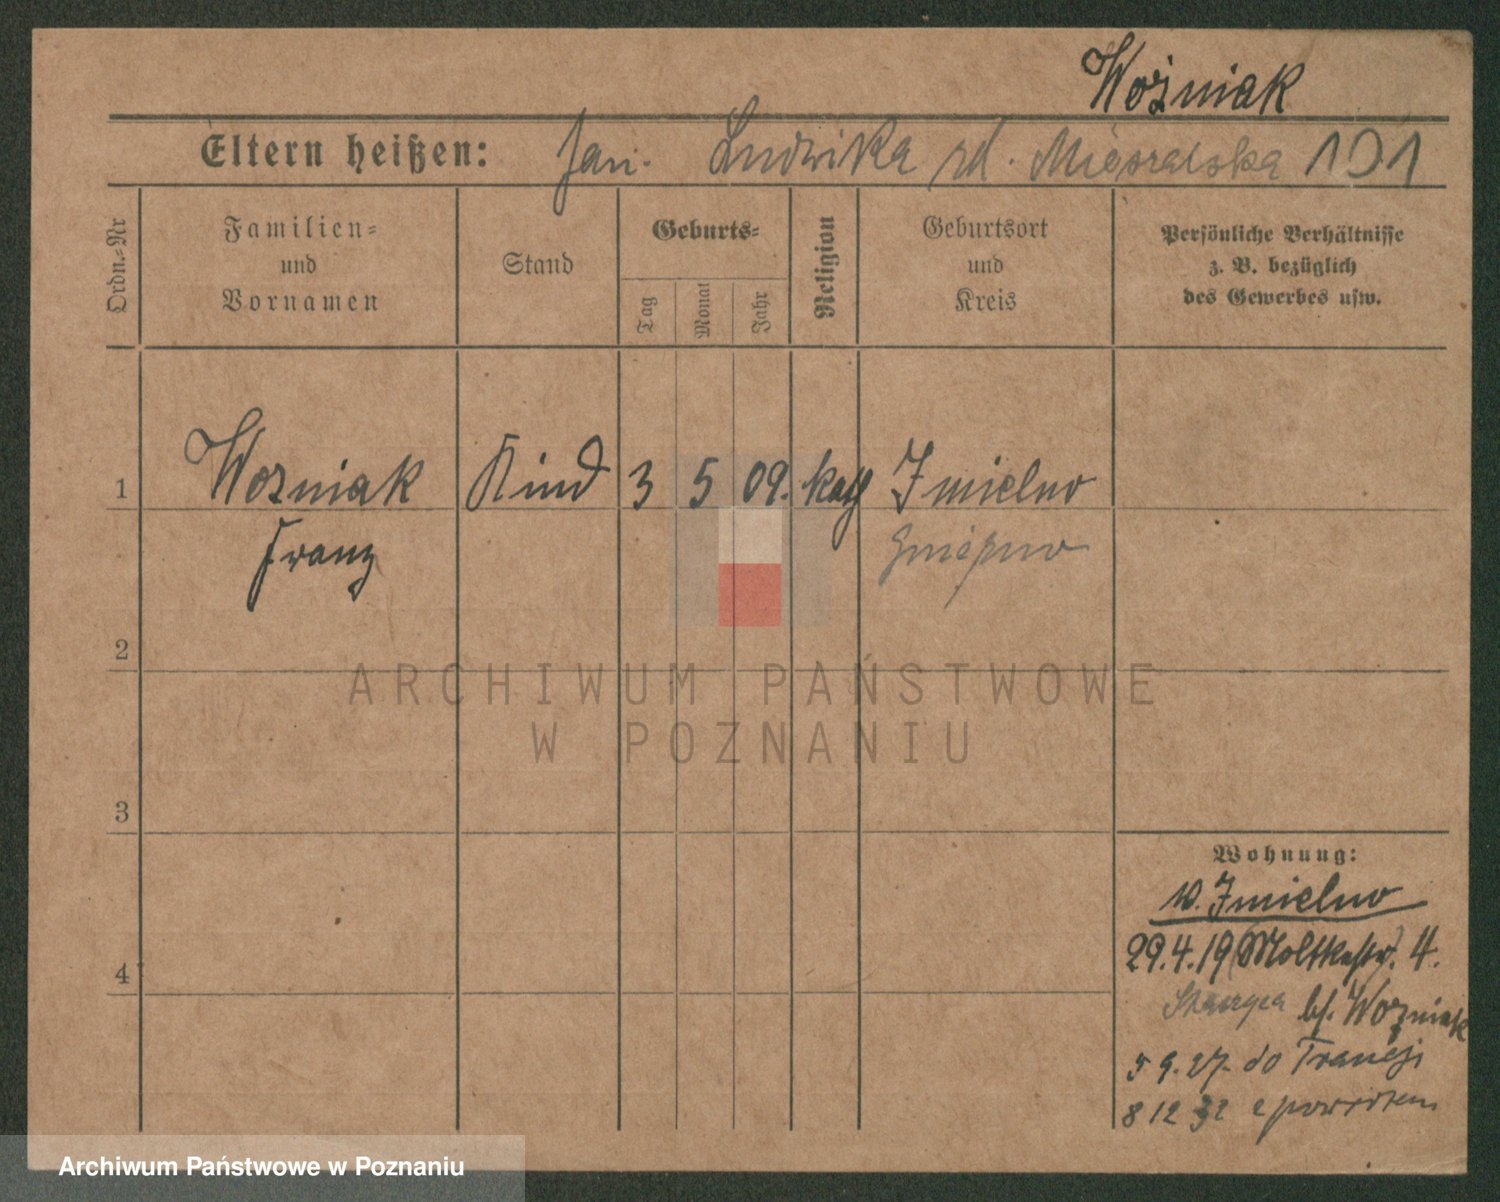 Woźniak
Eltern heißen: Jan. Ludwika zd. 191
Ordn.-Nr
Familien-
und
Vornamen
Stand
Geburts-
Tag
Monat
Jahr
Religion
Geburtsort
und
Kreis
Persönliche Verhältnisse
z. B. bezüglich
des Gewerbes usw.
1 Wozniak Kind 3 5 09. kath Imielno
Franz Gniezno
2
ARCHIWUM PAŃSTWOWE
W POZNANIU
3
Wohnung:
w. Imielno
29.4.19 (Moltkestr.) 4.
Skargea bf. Wozniak
5 9. 27. do Francji
8 12 32 z powrotem
4
Archiwum Państwowe w Poznaniu